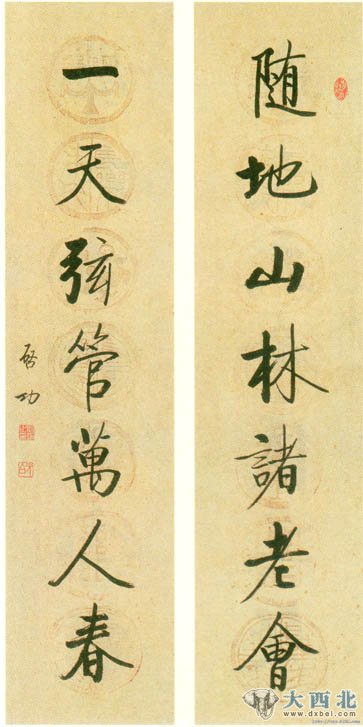 随地山林諸老會
一天弦管萬人春
啓功
大西北
www.dxbei.com